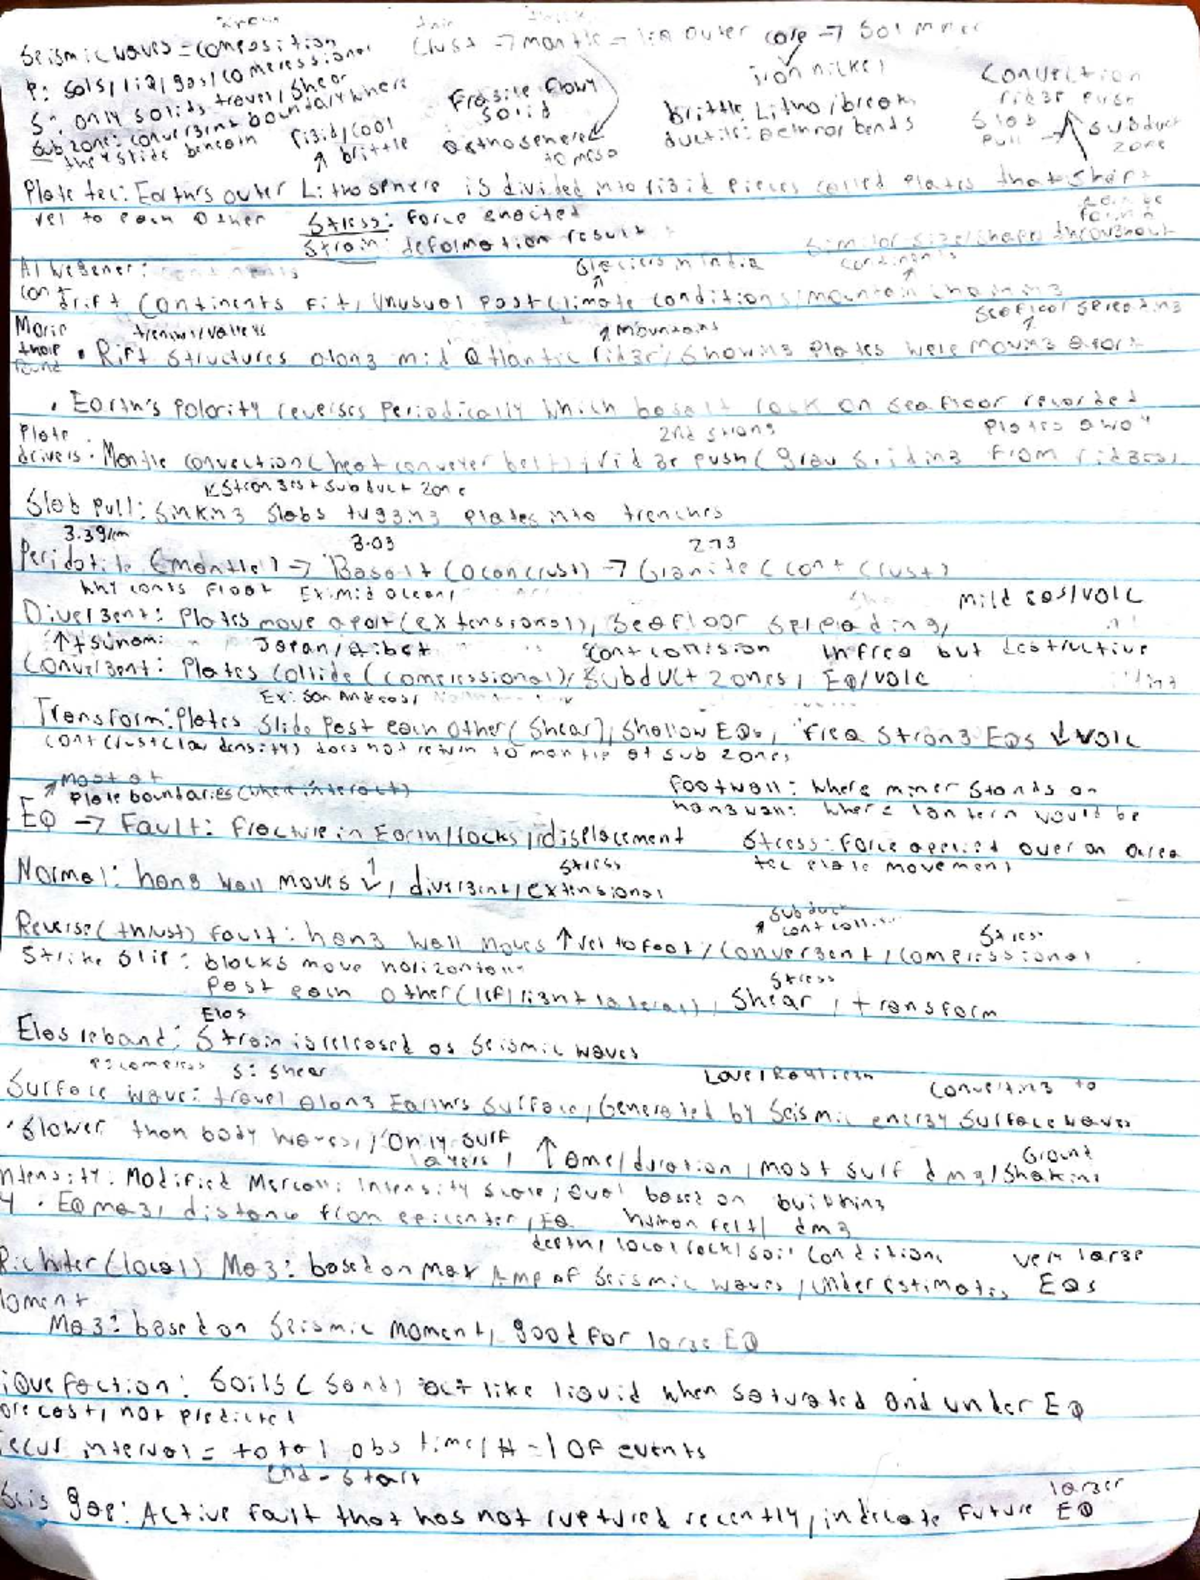 Seismic waves = composition
Crust → mantle → liq outer core → Sol inner
iron nickel
P: Sols/liq/gas/compressional
S: only solids travel/shear
Sub zone: convergent boundary where
they slide beneath
rigid/cool
↑ brittle
Fragile flowy
solid
asthosphere
to meso
brittle: Litho/break
ductile: bends
Convection
ridge push
Slab
pull →
subduct
zone
Plate tec: Earth's outer Lithosphere is divided into rigid pieces called plates that shift
rel to each other
Stress: Force enacted
Strain: deformation result
can be
found
Similar size/shape throughout
continents
Al Wegener:
Glaciers in India
cont
drift Continents fit, Unusual past climate conditions, mountain chains
Seafloor spreading
Marie
tharp
found
↑ mountains
• Rift structures along mid Atlantic ridge, showing plates were moving apart
• Earth's Polarity reverses periodically which basalt rock on seafloor recorded
Plate
drivers • Mantle convection (heat conveyer belt), ridge push (grav sliding from ridges),
2nd strong
Plates away
↙ Strongest + subduct zone
Slab pull: Sinking slabs tugging plates into trenches
3.03
2.73
Peridotite (mantle) → Basalt (Ocon crust) → Granite (cont crust)
why conts float
Ex: Mid Ocean
mild EQs/volc
Divergent: Plates move apart (extensional), Seafloor spreading,
↑ tsunami
Japan/
cont collision
infreq but destructive
Convergent: Plates Collide (compressional), Subduct zones, EQ/volc
Ex: San Andreas
Transform: Plates slide past each other (Shear), Shallow EQs, freq strong EQs ↓ volc
cont crust (low density) does not return to mantle at sub zones
↗ most at
plate boundaries (where interact)
Footwall: Where miner stands on
hangwall: Where lantern would be
EQ → Fault: fracture in Earth/rocks, displacement
Stress: Force applied over an area
tec plate movement
Stress
Normal: hang wall moves ↓, divergent/extensional
Subduct
↗ cont
Stress
Reverse (thrust) fault: hang wall moves ↑ rel to foot/convergent/compressional
Strike Slip: blocks move horizontal
past each other (left/right lateral), Shear, transform
Stress
Elas
Elas rebound: Strain is released as seismic waves
P: compress S: shear
Converting to
Surface wave: travel along Earth's surface, Generated by seismic energy surface waves
• Slower than body waves, only surf
layers, ↑ amp/duration, most surf dmg/shaking
Ground
ntensity: Modified Mercalli Intensity scale, qual based on building
human felt/ dmg
• EQ mag, distance from epicenter, EQ
depth, local rock/soil conditions
Richter (local) Mag: based on max Amp of seismic waves, underestimates very large
EQs
oment
Mag: based on seismic moment, good for large EQ
iquefaction: Soils (sand) act like liquid when saturated and under EQ
orecast, not predicted
ecur interval = total obs time/# - 1 of events
end - start
Seis gap: Active fault that has not ruptured recently, indicate future larger
EQ